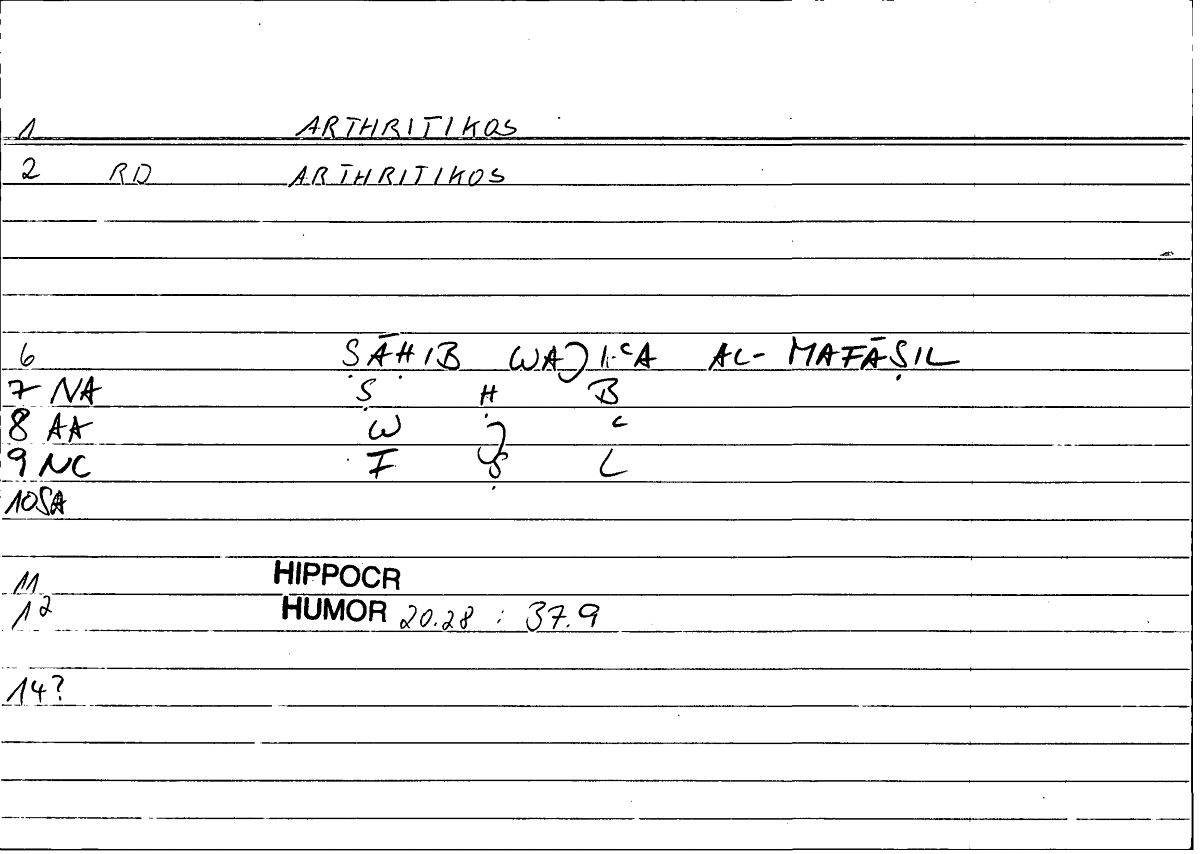 1 ARTHRITIKOS
2 RD ARTHRITIKOS
6 ṢĀḤIB WAJIʿA AL- MAFĀṢIL
7 NA Ṣ Ḥ B
8 AA W J ʿ
9 NC F Ṣ L
10 SA
11 HIPPOCR
12 HUMOR 20.28 : 37.9
14?